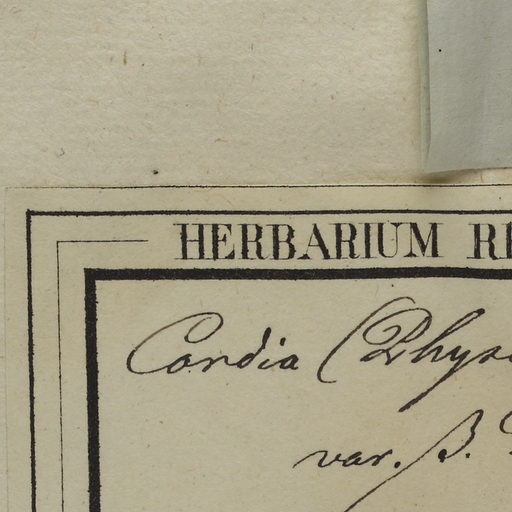 HERBARIUM
Cordia (Phys
var. β.